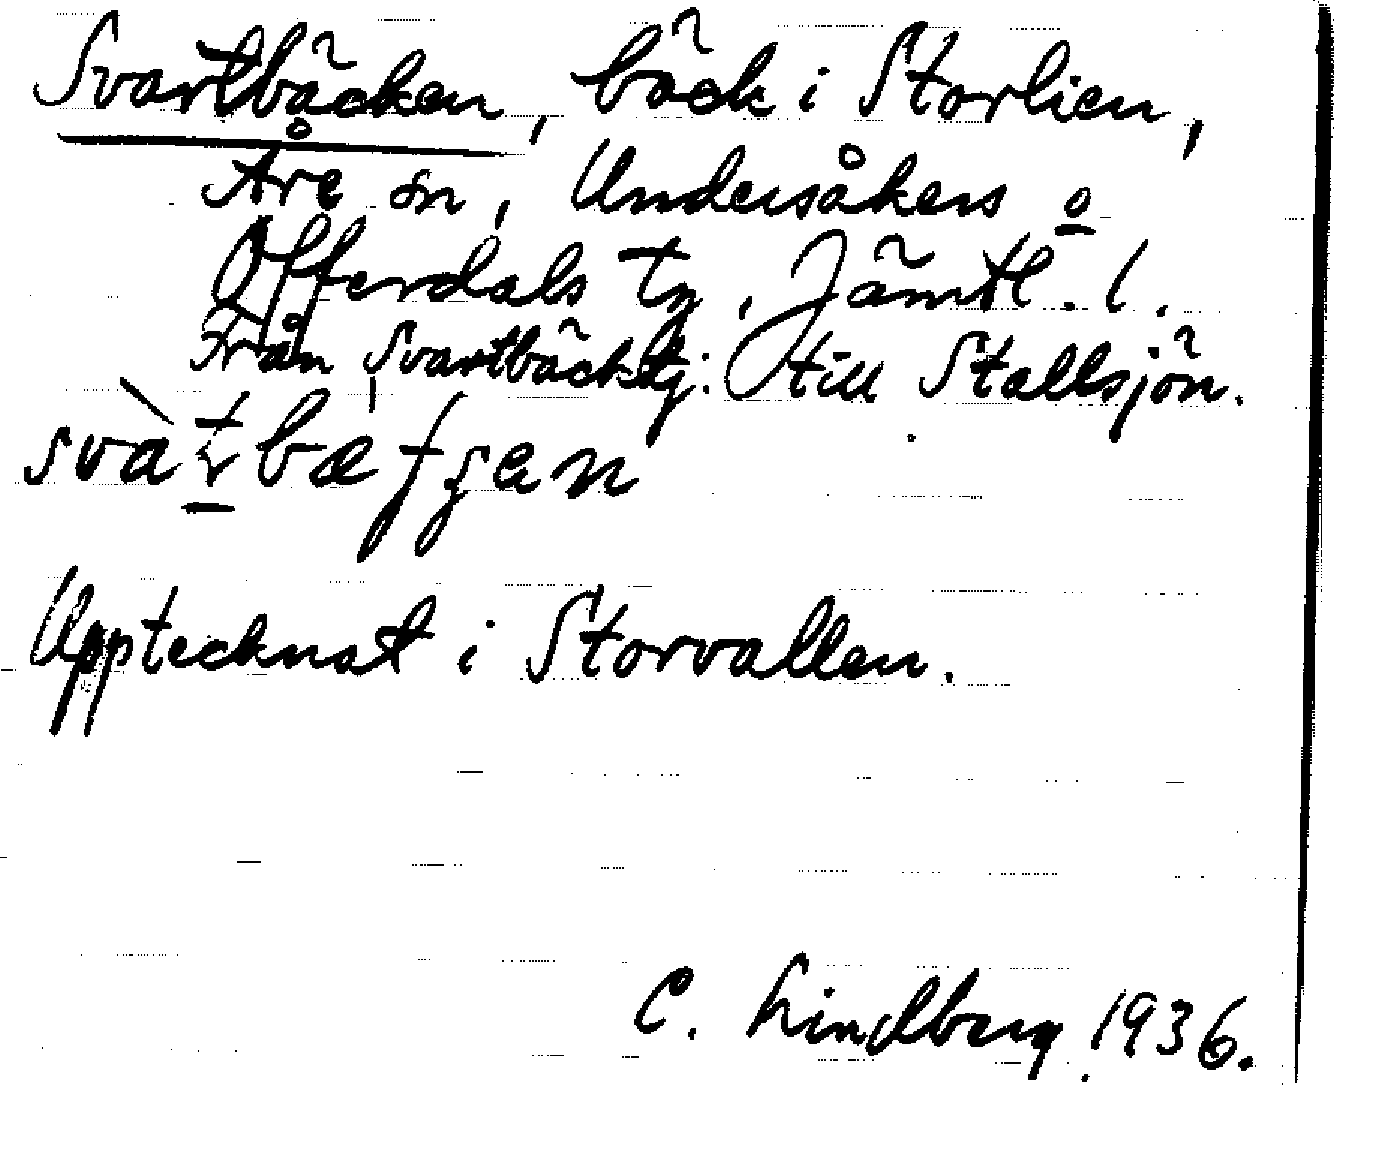 Svartbäcken, bäck i Storlien,
Åre sn, Undersåkers o
Offerdals tg, Jämtl. l.
Från Svartbäcktj: till Stallsjön.
Upptecknat i Storvallen.
C. Lindberg. 1936.